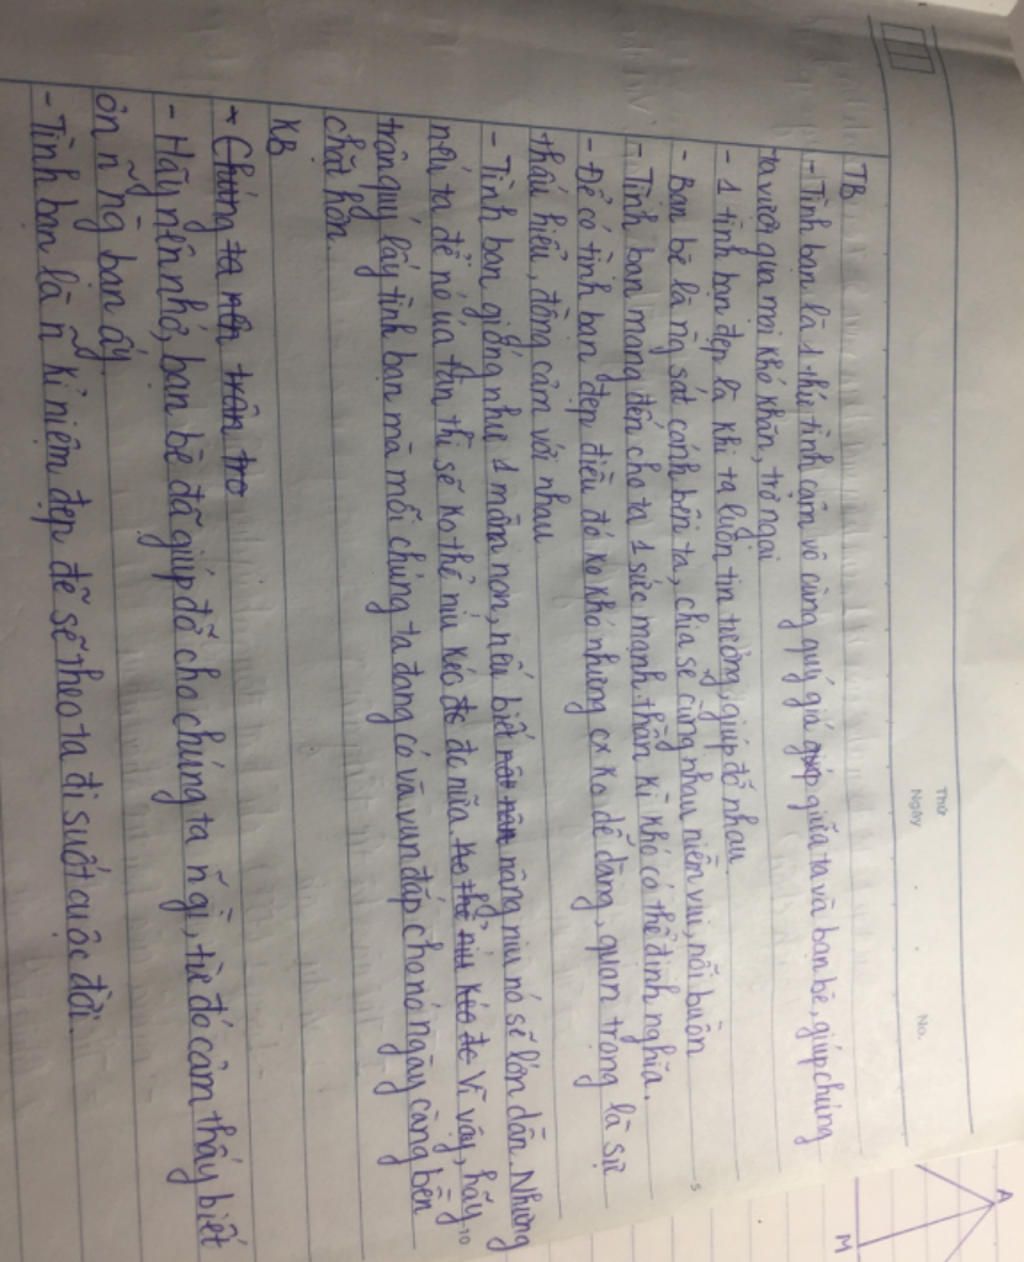 Thứ
Ngày
No.
TB
- Tình bạn là 1 thứ tình cảm vô cùng quý giá giúp giữa ta và bạn bè, giúp chúng
ta vượt qua mọi khó khăn, trở ngại
- 1 tình bạn đẹp là khi ta luôn tin tưởng, giúp đỡ nhau.
- Bạn bè là ng~ sát cánh bên ta, chia sẻ cùng nhau niềm vui, nỗi buồn
- Tình bạn mang đến cho ta 1 sức mạnh thần kì khó có thể định nghĩa.
- Để có tình bạn đẹp điều đó ko khó nhưng cx ko dễ dàng, quan trọng là sự
thấu hiểu, đồng cảm với nhau
- Tình bạn giống như 1 mầm non, nếu biết nâng niu nó sẽ lớn dần. Nhưng
nếu ta để nó úa tàn thì sẽ ko thể níu kéo đc đc nữa. ko thể níu kéo đc Vì vậy, hãy
trân quý lấy tình bạn mà mỗi chúng ta đang có và vun đắp cho nó ngày càng bền
chặt hơn.
KB
+ Chúng ta nên trân trọ
- Hãy nên nhớ, bạn bè đã giúp đỡ cho chúng ta n~ gì, từ đó cảm thấy biết
ơn n~ ng` bạn ấy
- Tình bạn là n~ kỉ niệm đẹp đẽ sẽ theo ta đi suốt cuộc đời.
5
10
A
M